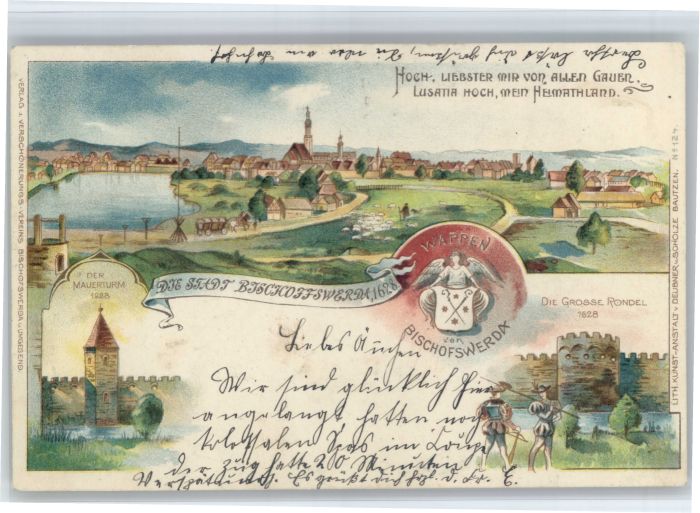 HOCH-, LIEBSTER MIR VON ALLEN GAUEN.
LUSATIA HOCH, MEIN HEIMATHLAND.
VERLAG D. VERSCHÖNERUNGS-VEREINS BISCHOFSWERDA U. UMGEGEND.
LITH. KUNST-ANSTALT V. DEUSNER U. SCHOLZE BAUTZEN. No 124.
DIE STADT BISCHOFFSWERDA, 1628
WAPPEN
von
BISCHOFSWERDA
DER
MAUERTURM
1628
DIE GROSSE RONDEL
1628
Liebes Änchen
Wir sind glücklich hier
angelangt hatten noch
kolossalen Spas im Coupe
der Zug hatte 20 Minuten
Verspätung. Es grüßt dich hzl. d. E.